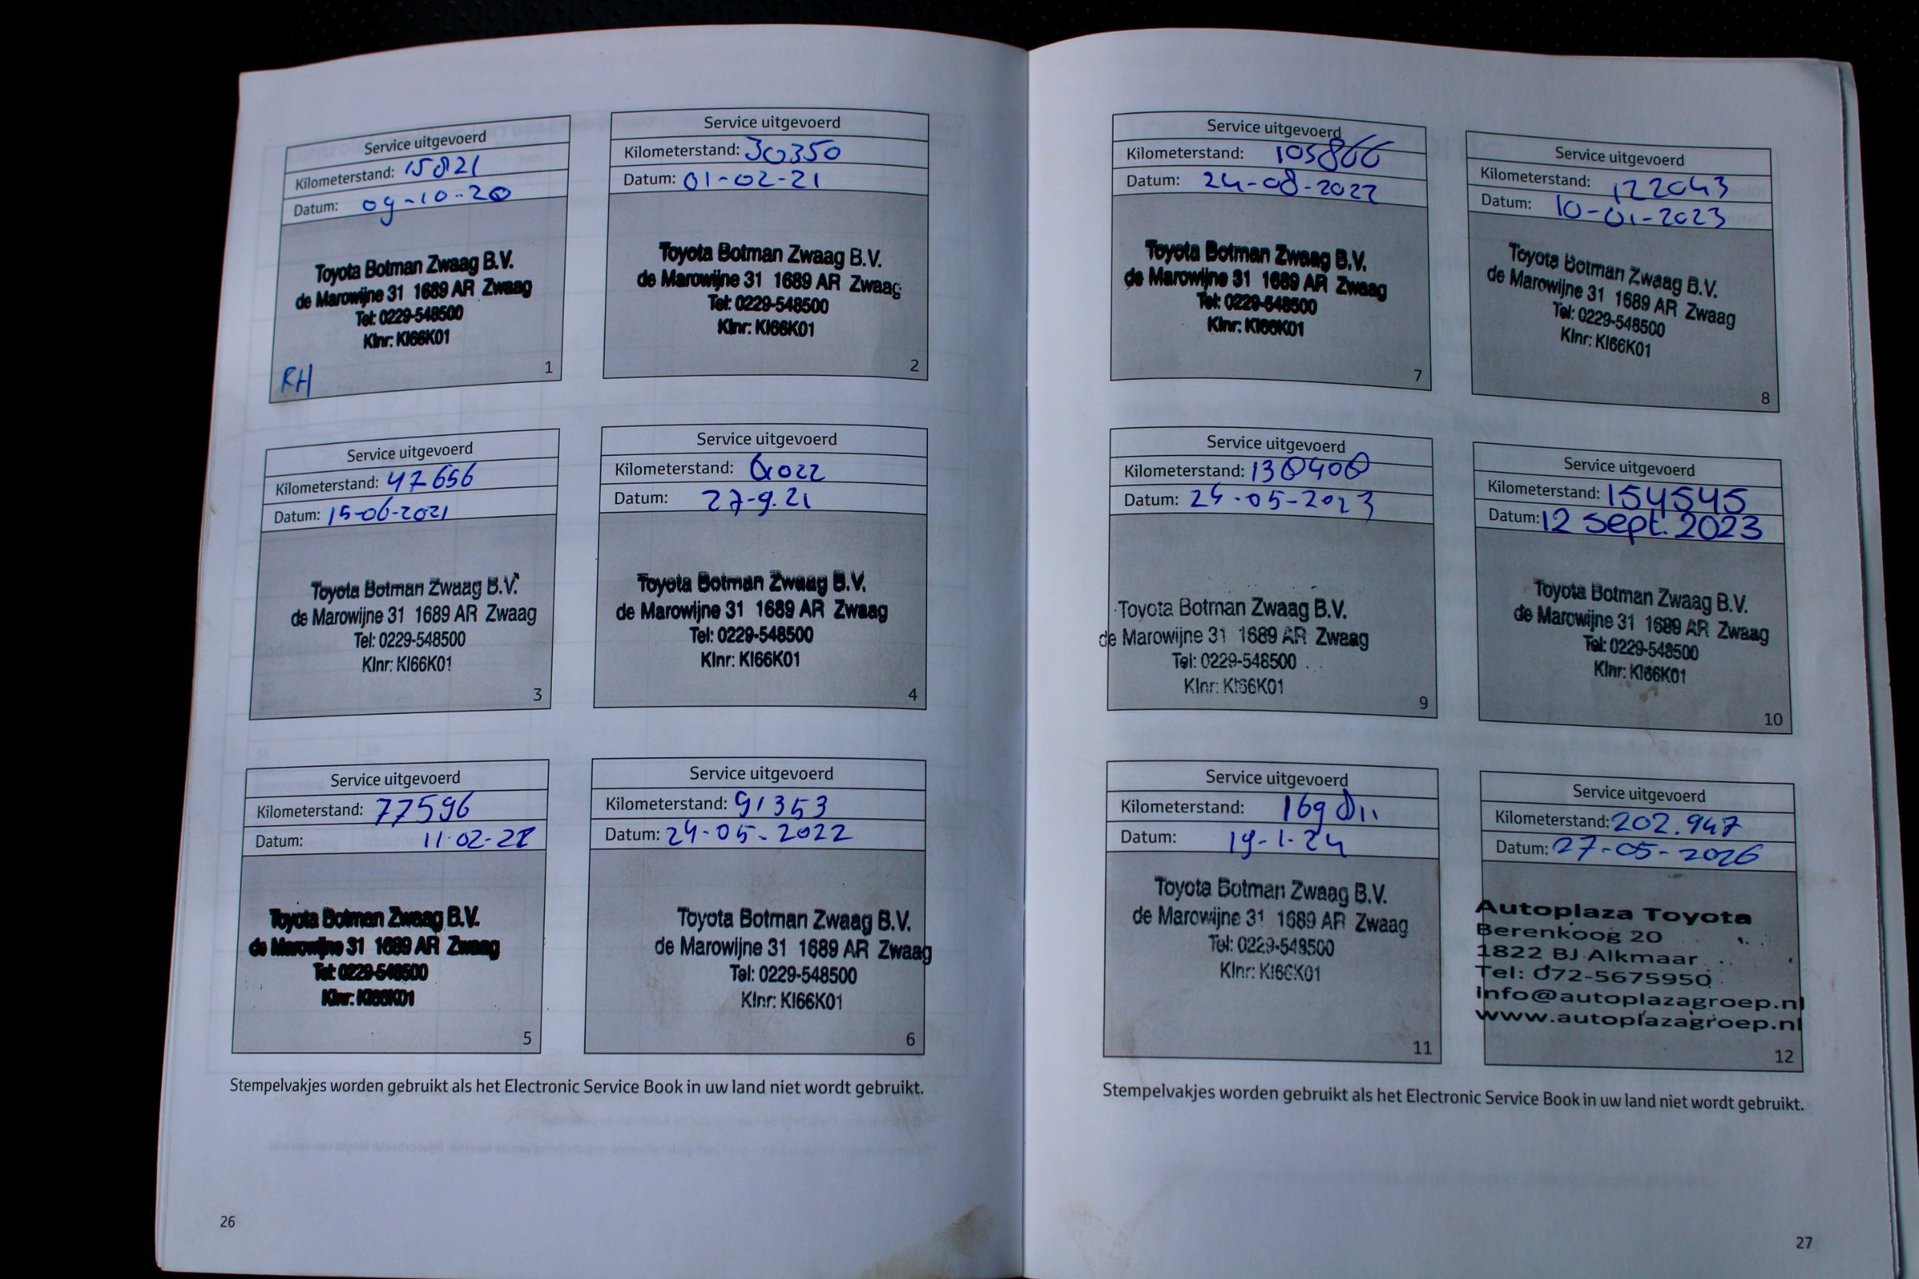 Service uitgevoerd
Kilometerstand: 15821
Datum: 09-10-20
Toyota Botman Zwaag B.V.
de Marowijne 31 1689 AR Zwaag
Tel: 0229-548500
Klnr: KI66K01
RH
1
Service uitgevoerd
Kilometerstand: 30350
Datum: 01-02-21
Toyota Botman Zwaag B.V.
de Marowijne 31 1689 AR Zwaag
Tel: 0229-548500
Klnr: KI66K01
2
Service uitgevoerd
Kilometerstand: 47656
Datum: 15-06-2021
Toyota Botman Zwaag B.V.
de Marowijne 31 1689 AR Zwaag
Tel: 0229-548500
Klnr: KI66K01
3
Service uitgevoerd
Kilometerstand:
Datum: 27-9.21
Toyota Botman Zwaag B.V.
de Marowijne 31 1689 AR Zwaag
Tel: 0229-548500
Klnr: KI66K01
4
Service uitgevoerd
Kilometerstand: 77596
Datum: 11-02-22
Toyota Botman Zwaag B.V.
de Marowijne 31 1689 AR Zwaag
Tel: 0229-548500
Klnr: KI66K01
5
Service uitgevoerd
Kilometerstand: 91353
Datum: 24-05-2022
Toyota Botman Zwaag B.V.
de Marowijne 31 1689 AR Zwaag
Tel: 0229-548500
Klnr: KI66K01
6
Stempelvakjes worden gebruikt als het Electronic Service Book in uw land niet wordt gebruikt.
26
Service uitgevoerd
Kilometerstand: 105866
Datum: 24-08-2022
Toyota Botman Zwaag B.V.
de Marowijne 31 1689 AR Zwaag
Tel: 0229-548500
Klnr: KI66K01
7
Service uitgevoerd
Kilometerstand: 122043
Datum: 10-01-2023
Toyota Botman Zwaag B.V.
de Marowijne 31 1689 AR Zwaag
Tel: 0229-548500
Klnr: KI66K01
8
Service uitgevoerd
Kilometerstand: 130400
Datum: 24-05-2023
Toyota Botman Zwaag B.V.
de Marowijne 31 1689 AR Zwaag
Tel: 0229-548500
Klnr: KI66K01
9
Service uitgevoerd
Kilometerstand: 154545
Datum: 12 sept. 2023
Toyota Botman Zwaag B.V.
de Marowijne 31 1689 AR Zwaag
Tel: 0229-548500
Klnr: KI66K01
10
Service uitgevoerd
Kilometerstand:
Datum: 19-1-24
Toyota Botman Zwaag B.V.
de Marowijne 31 1689 AR Zwaag
Tel: 0229-548500
Klnr: KI66K01
11
Service uitgevoerd
Kilometerstand: 202.947
Datum: 27-05-2026
Autoplaza Toyota
Berenkoog 20
1822 BJ Alkmaar
Tel: 072-5675950
info@autoplazagroep.nl
www.autoplazagroep.nl
12
Stempelvakjes worden gebruikt als het Electronic Service Book in uw land niet wordt gebruikt.
27